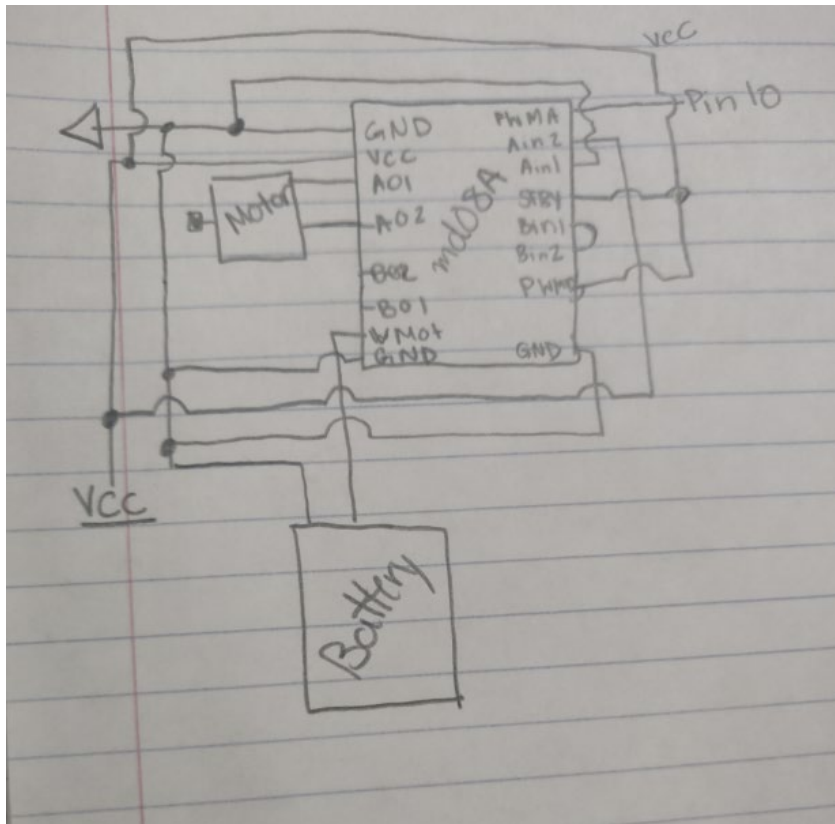 VCC
Pin 10
GND
VCC
A01
A02
B02
B01
VMot
GND
PWMA
Ain2
Ain1
STBY
Bin1
Bin2
PWMB
GND
md08A
Motor
VCC
Battery